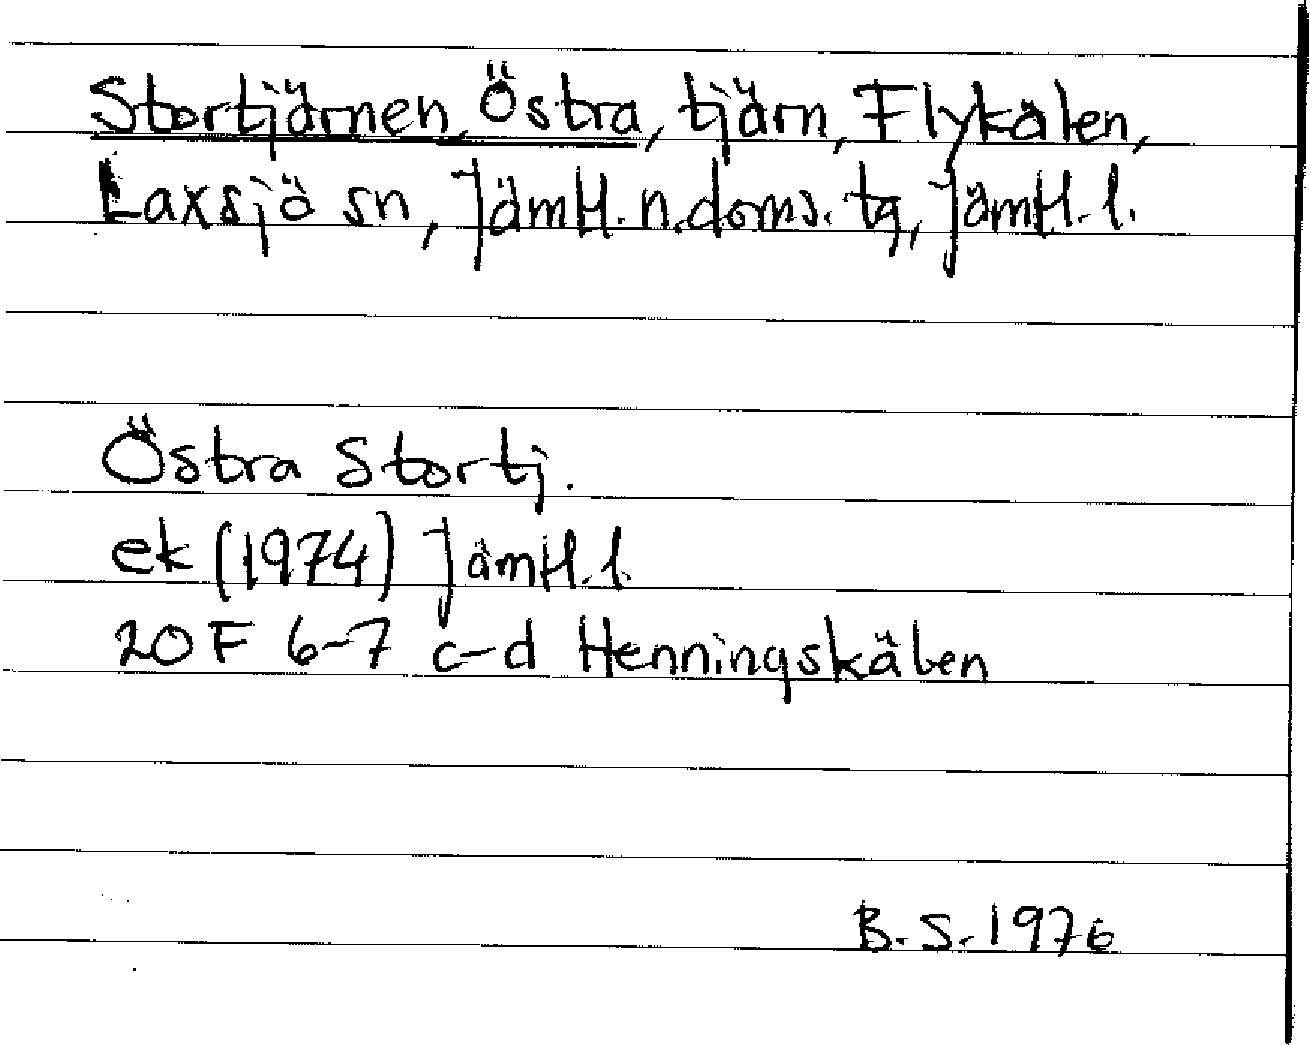 Stortjärnen, Östra, tjärn, Flykälen,
Laxsjö sn, Jämtl. n. doms. tg, Jämtl. l.
Östra Stortj.
ek (1974) Jämtl. l.
20 F 6-7 c-d Henningskälen
B. S. 1976